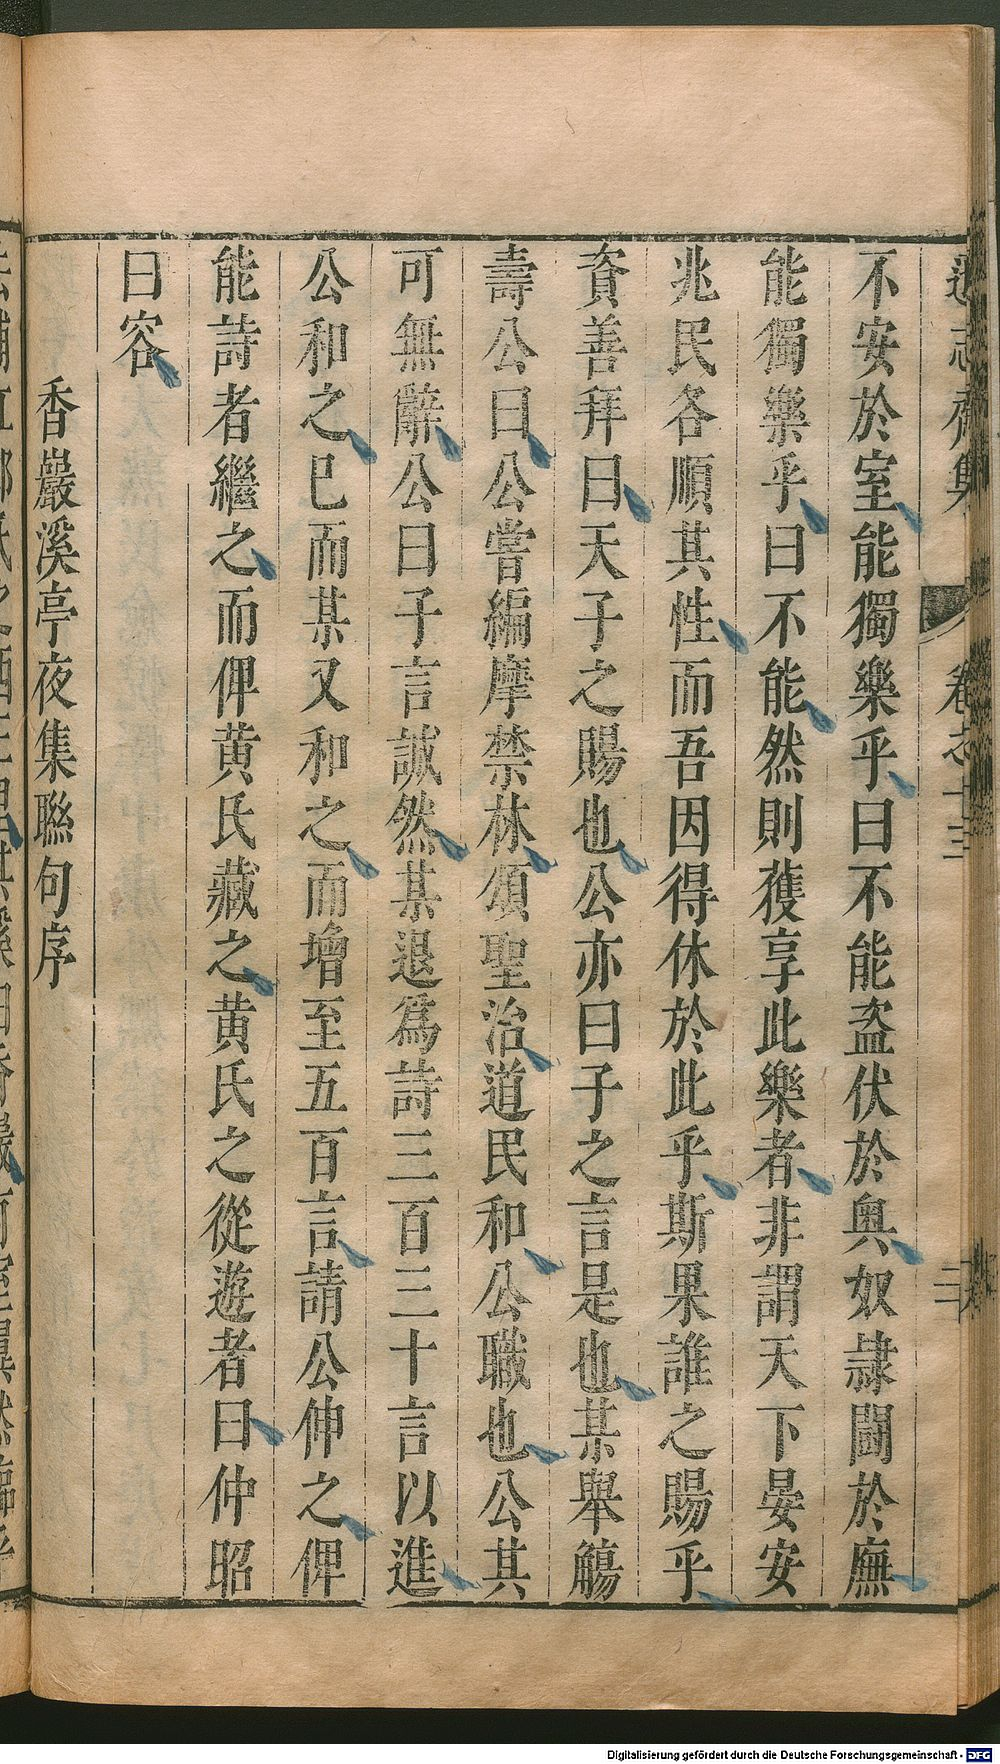 遜志齋集 卷之十三
不安於室能獨樂乎曰不能盜伏於奧奴隷鬪於廡
能獨樂乎曰不能然則獲享此樂者非謂天下晏安
兆民各順其性而吾因得休於此乎斯果誰之賜乎
資善拜曰天子之賜也公亦曰子之言是也某舉觴
壽公曰公嘗編摩禁林頌聖治道民和公職也公其
可無辭公曰子言誠然某退爲詩三百三十言以進
公和之已而某又和之而增至五百言請公仲之俾
能詩者繼之而俾黃氏藏之黃氏之從遊者曰仲昭
曰容
香巖溪亭夜集聯句序
Digitalisierung gefördert durch die Deutsche Forschungsgemeinschaft - DFG